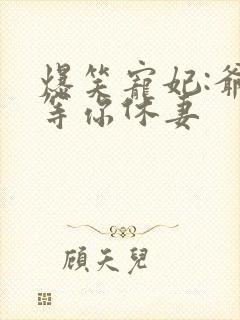 爆笑寵妃:爺
等你休妻
顧天兒